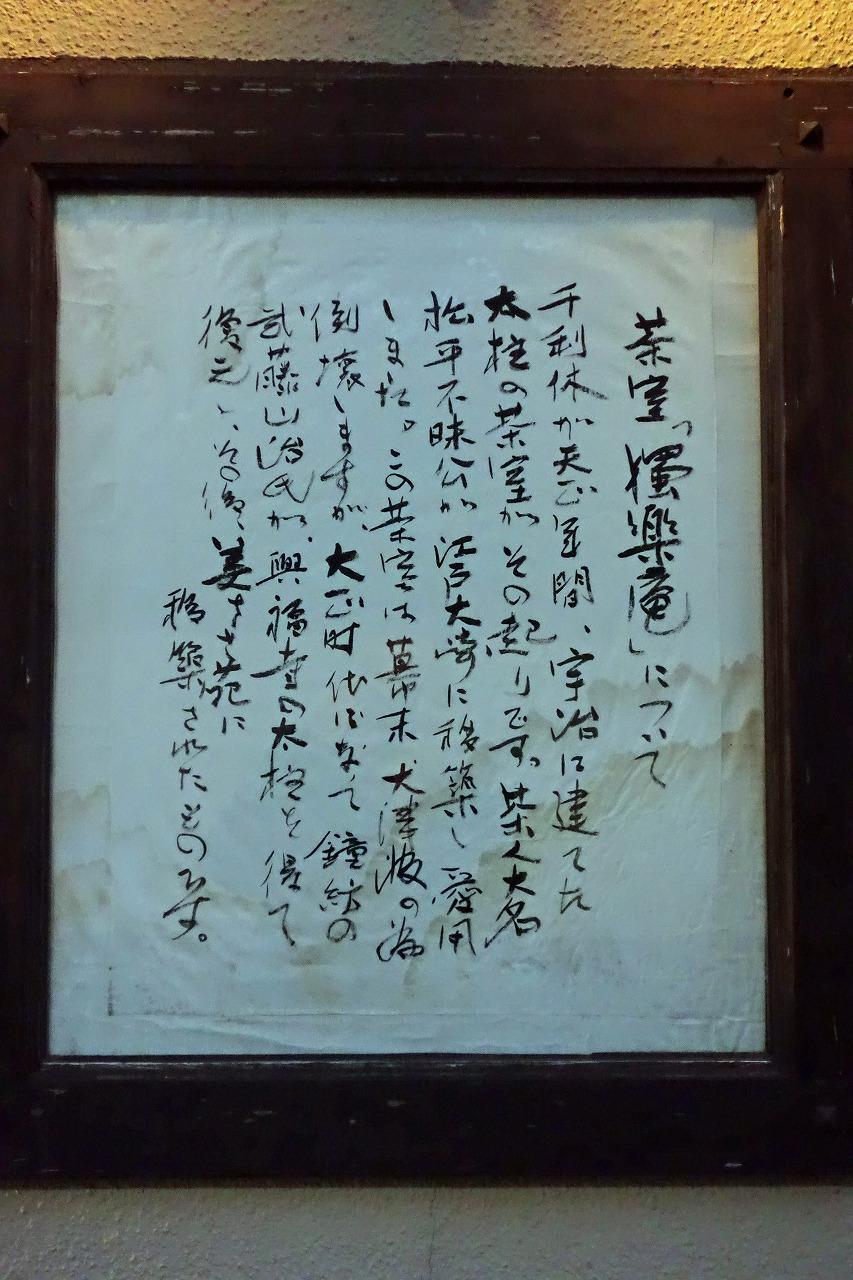 茶室「獨樂庵」について
千利休が天正年間、宇治に建てた
太柱の茶室がその起りです。茶人大名
松平不昧公が江戸大崎に移築し愛用
しました。この茶室は幕末大津波の為
倒壊しますが、大正時代になって鐘紡の
武藤山治氏が、興福寺の太柱を得て
復元し、その後、美ささ苑に
移築されたものです。